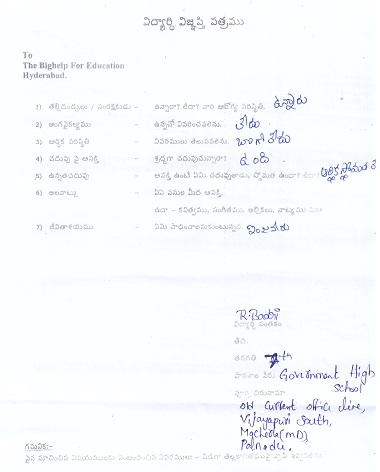 విద్యార్థి విజ్ఞప్తి పత్రము
To
The Bighelp For Education
Hyderabad.
1) తల్లిదండ్రులు / సంరక్షకుడు - ఉన్నారా? లేదా? వారి ఆరోగ్య పరిస్థితి. ఉన్నారు
2) అంగవైకల్యము - ఉన్నచో వివరించవలెను. లేదు
3) ఆర్థిక పరిస్థితి - వివరములు తెలుపవలెను. బాగా లేదు
4) చదువు పై ఆసక్తి - శ్రద్ధగా చదువుచున్నారా? ఉంది
5) ఉన్నతచదువు - ఆసక్తి ఉంటే ఏమి చదువుతాడు, స్తోమత ఉందా? లేదా? ఆర్థిక స్తోమత
6) అలవాట్లు - ఏఏ పనుల మీద ఆసక్తి.
ఉదా - కవిత్వము, సంగీతము, ఆర్టికలు, నాట్యము
7) జీవితాశయము - ఏమి సాధించాలనుకుంటున్నది. ఇంజనీరు
R. Bodhi
విద్యార్థి సంతకం
పేరు
తరగతి 7th
పాఠశాల పేరు Government High
School
పూర్తి చిరునామా
old current office line,
Vijayapuri South,
Macherla (MD)
Palnadu.
గమనిక:-
పైన సూచించిన విషయములకు సంబంధించిన వివరములు - విడిగా తెల్ల కాగితముపై వ్రాసి